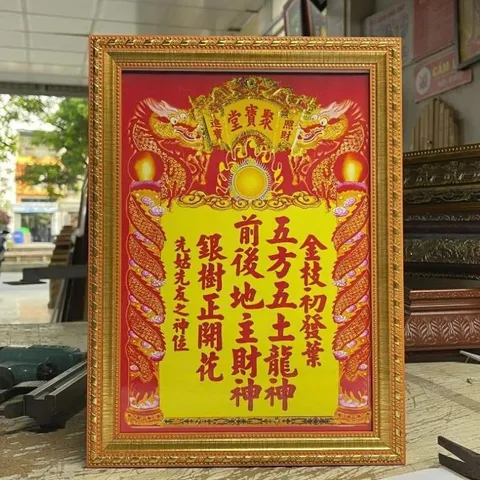 聚寶堂
財
進寶
金枝初發葉
五方五土龍神
前後地主財神
銀樹正開花
之神位
CẤM